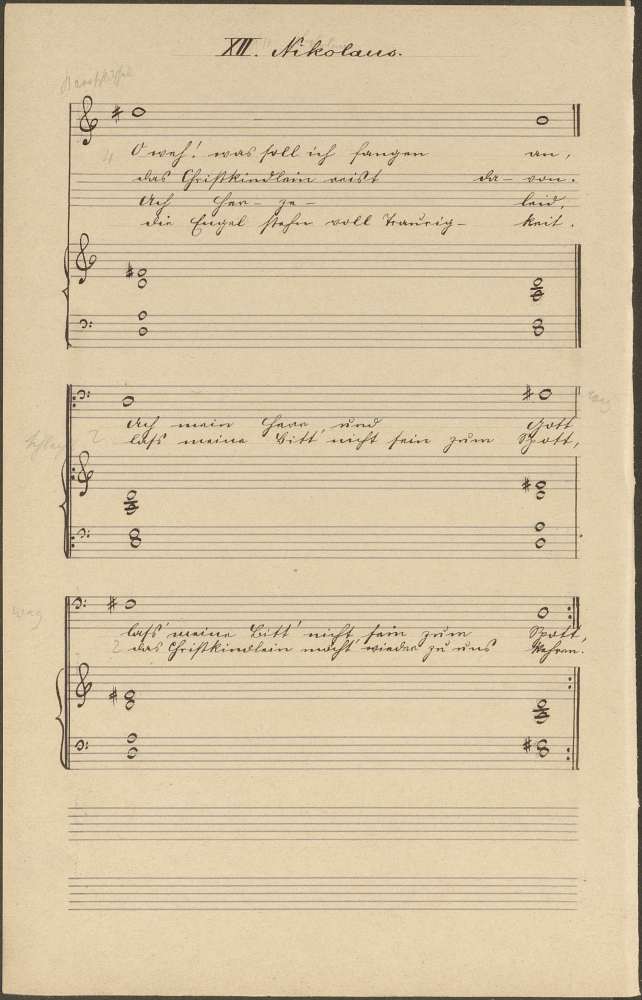 XII. Nikolaus.
O weh! was soll ich fangen an,
das Christkindlein reist da- von.
Ach Her- ze- leid,
die Engel stehn voll Traurig- keit.
Ach mein Herr und Gott
2 lass meine Bitt' nicht sein zum Spott,
weg
lass meine Bitt' nicht sein zum Spott,
2 das Christkindlein möcht' wieder zu uns kehren.